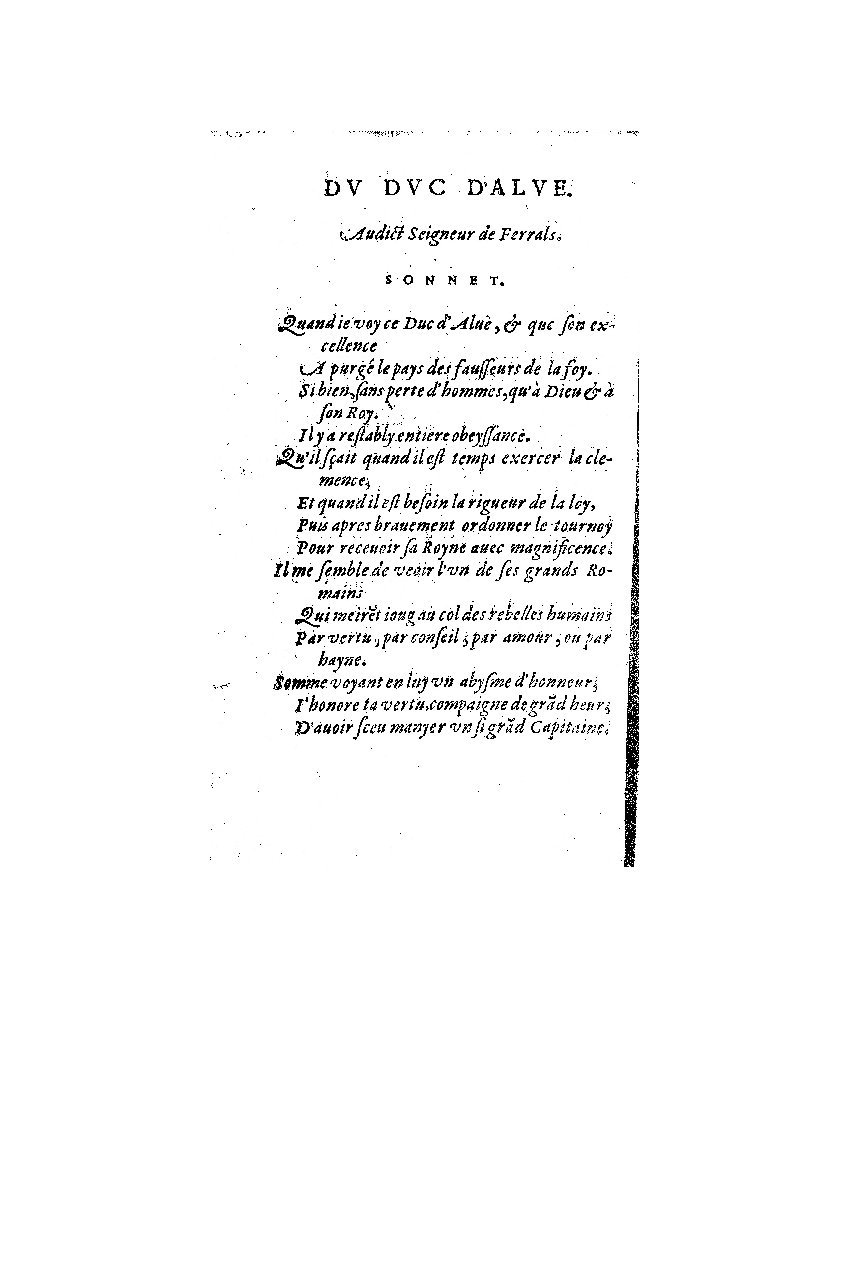 DV DVC D'ALVE.
Audict Seigneur de Ferrals.
SONNET.
Quand ie voy ce Duc d'Alue, & que ſon ex-
cellence
A purgé le pays des fauſſeurs de la foy.
Si bien, ſans perte d'hommes, qu'à Dieu & à
ſon Roy.
Il y a reſtably entiere obeyſſance.
Qu'il ſçait quand il eſt temps exercer la cle-
mence,
Et quand il eſt beſoin la rigueur de la loy,
Puis apres brauement ordonner le tournoy
Pour receuoir ſa Royne auec magnificence.
Il me ſemble de veoir l'vn de ſes grands Ro-
mains
Qui meirẽt ioug au col des rebelles humains
Par vertu, par conſeil, par amour, ou par
hayne.
Somme voyant en luy vn abyſme d'honneur,
I'honore ta vertu, compaigne de grãd heur,
D'auoir ſceu manyer vn ſi grãd Capitaine.